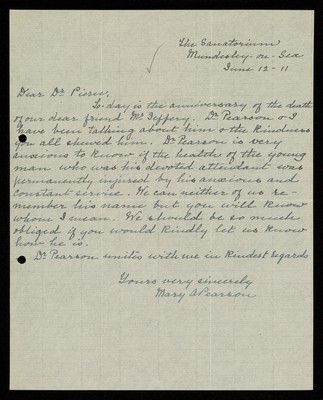 The Sanatorium
Mundesley-on-Sea
June 12-11
Dear Dr Piera,
To-day is the anniversary of the death
of our dear friend Mr Jeffery. Dr Pearson & I
have been talking about him & the kindness
you all shewed him. Dr Pearson is very
anxious to know if the health of the young
man who was his devoted attendant was
permanently injured by his anxious and
constant service. We can neither of us re-
member his name but you will know
whom I mean. We should be so much
obliged if you would kindly let us know
how he is.
Dr Pearson unites with me in kindest regards
Yours very sincerely
Mary A Pearson